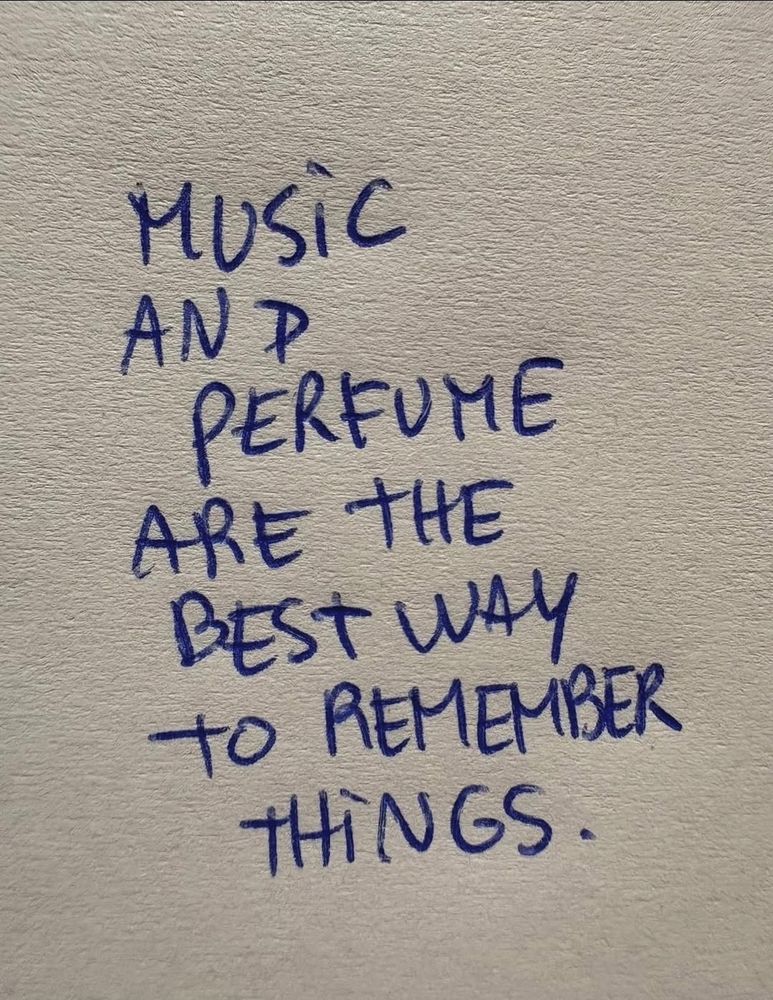 MUSiC
AND
PERFUME
ARE THE
BEST WAY
TO REMEMBER
THiNGS.